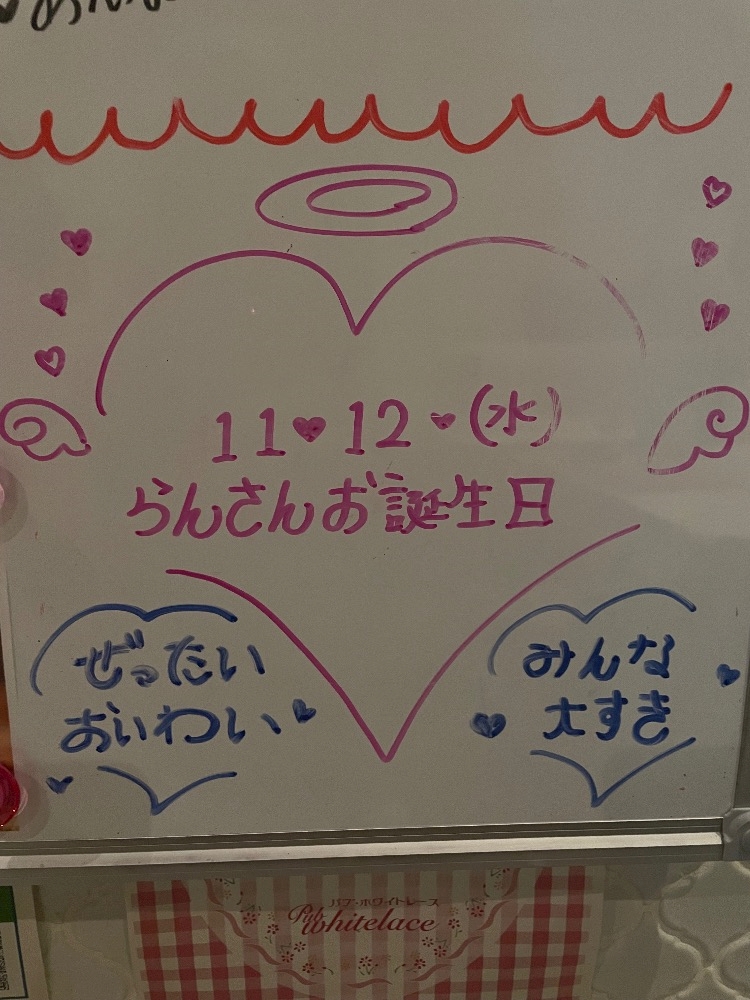 11♥12♥(水)
らんさんお誕生日
ぜったい
おいわい
みんな
大すき
パブ・ホワイトレース
Pub
Whitelace